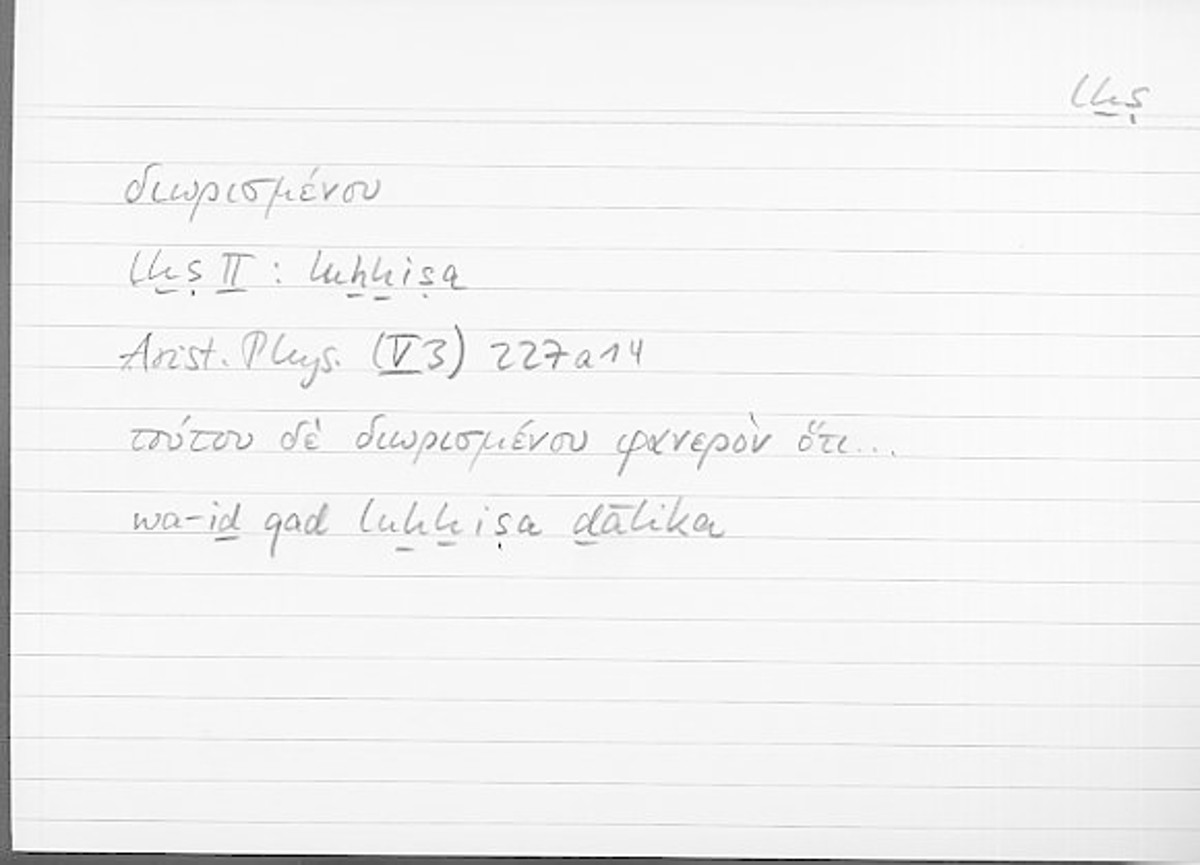 lẖṣ
διωρισμένου
lẖṣ II : luẖẖiṣa
Arist. Phys. (V 3) 227a14
τούτου δὲ διωρισμένου φανερὸν ὅτι...
wa-iḏ qad luẖẖiṣa ḏālika